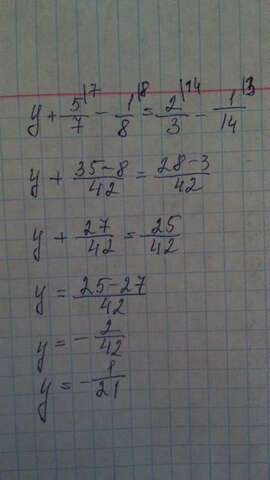 y + 5/7 |7 - 1/8 |8 = 2/3 |14 - 1/14 |3
y + 35-8/42 = 28-3/42
y + 27/42 = 25/42
y = 25-27/42
y = - 2/42
y = - 1/21